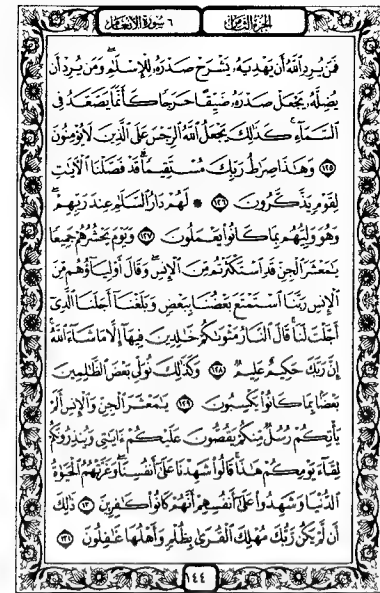 ٦ سورة الأنعام
الجزء الثامن
فَمَن يُرِدِ ٱللَّهُ أَن يَهْدِيَهُۥ يَشْرَحْ صَدْرَهُۥ لِلْإِسْلَٰمِ ۖ وَمَن يُرِدْ أَن
يُضِلَّهُۥ يَجْعَلْ صَدْرَهُۥ ضَيِّقًا حَرَجًا كَأَنَّمَا يَصَّعَّدُ فِى
ٱلسَّمَآءِ ۚ كَذَٰلِكَ يَجْعَلُ ٱللَّهُ ٱلرِّجْسَ عَلَى ٱلَّذِينَ لَا يُؤْمِنُونَ
١٢٥ وَهَٰذَا صِرَٰطُ رَبِّكَ مُسْتَقِيمًا ۗ قَدْ فَصَّلْنَا ٱلْءَايَٰتِ
لِقَوْمٍ يَذَّكَّرُونَ ١٢٦ * لَهُمْ دَارُ ٱلسَّلَٰمِ عِندَ رَبِّهِمْ ۖ
وَهُوَ وَلِيُّهُم بِمَا كَانُوا۟ يَعْمَلُونَ ١٢٧ وَيَوْمَ يَحْشُرُهُمْ جَمِيعًا
يَٰمَعْشَرَ ٱلْجِنِّ قَدِ ٱسْتَكْثَرْتُم مِّنَ ٱلْإِنسِ ۖ وَقَالَ أَوْلِيَآؤُهُم مِّنَ
ٱلْإِنسِ رَبَّنَا ٱسْتَمْتَعَ بَعْضُنَا بِبَعْضٍ وَبَلَغْنَآ أَجَلَنَا ٱلَّذِىٓ
أَجَّلْتَ لَنَا ۚ قَالَ ٱلنَّارُ مَثْوَىٰكُمْ خَٰلِدِينَ فِيهَآ إِلَّا مَا شَآءَ ٱللَّهُ ۗ
إِنَّ رَبَّكَ حَكِيمٌ عَلِيمٌ ١٢٨ وَكَذَٰلِكَ نُوَلِّى بَعْضَ ٱلظَّٰلِمِينَ
بَعْضًۢا بِمَا كَانُوا۟ يَكْسِبُونَ ١٢٩ يَٰمَعْشَرَ ٱلْجِنِّ وَٱلْإِنسِ أَلَمْ
يَأْتِكُمْ رُسُلٌ مِّنكُمْ يَقُصُّونَ عَلَيْكُمْ ءَايَٰتِى وَيُنذِرُونَكُمْ
لِقَآءَ يَوْمِكُمْ هَٰذَا ۚ قَالُوا۟ شَهِدْنَا عَلَىٰٓ أَنفُسِنَا ۖ وَغَرَّتْهُمُ ٱلْحَيَوٰةُ
ٱلدُّنْيَا وَشَهِدُوا۟ عَلَىٰٓ أَنفُسِهِمْ أَنَّهُمْ كَانُوا۟ كَٰفِرِينَ ١٣٠ ذَٰلِكَ
أَن لَّمْ يَكُن رَّبُّكَ مُهْلِكَ ٱلْقُرَىٰ بِظُلْمٍ وَأَهْلُهَا غَٰفِلُونَ ١٣١
١٤٤